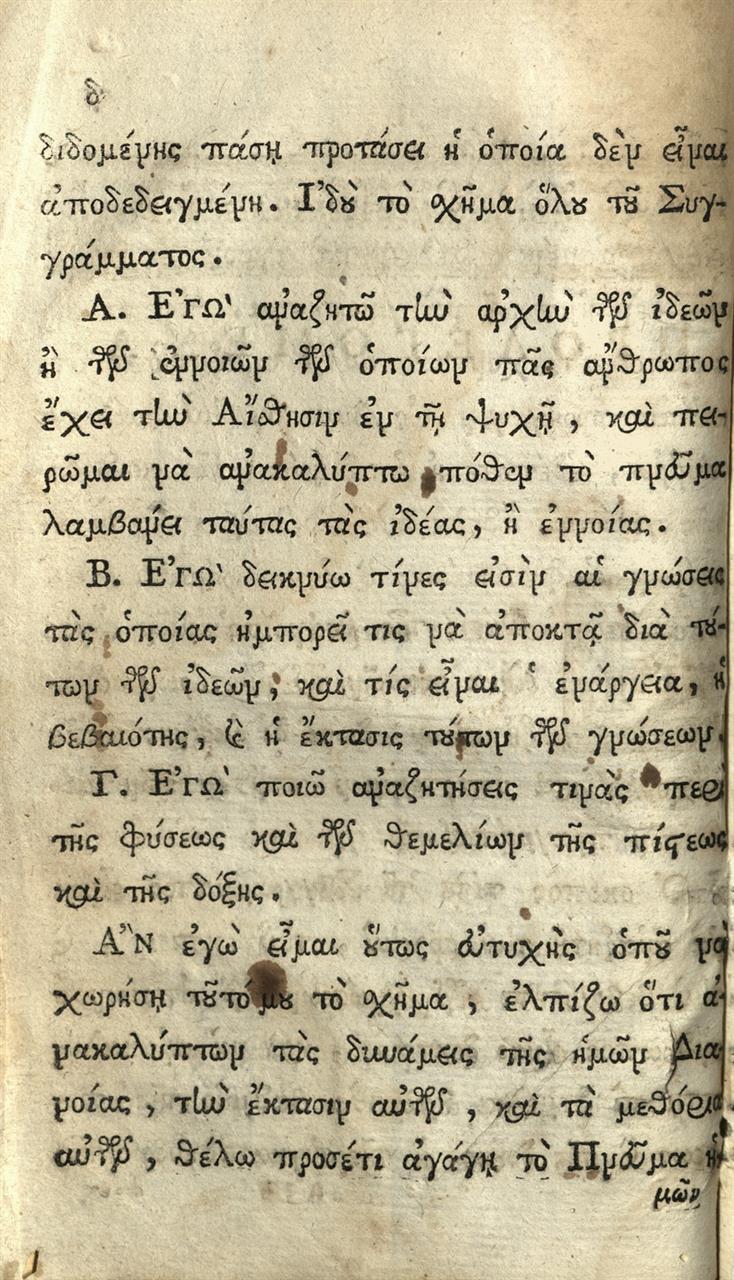 δ
διδομένης πάσῃ προτάσει ἡ ὁποία δὲν εἶναι
ἀποδεδειγμένη. Ἰδοὺ τὸ σχῆμα ὅλου τοῦ Συγ-
γράμματος.
Α. ΕʹΓΩ` ἀναζητῶ τὴν ἀρχὴν τῶν ἰδεῶν
ἢ τῶν ἐννοιῶν τῶν ὁποίων πᾶς ἄνθρωπος
ἔχει τὴν Αἴσθησιν ἐν τῇ ψυχῇ, καὶ πει-
ρῶμαι νὰ ἀνακαλύπτω πόθεν τὸ πνεῦμα
λαμβάνει ταύτας τὰς ἰδέας, ἢ ἐννοίας.
Β. ΕʹΓΩ` δεικνύω τίνες εἰσὶν αἱ γνώσεις
τὰς ὁποίας ἠμπορεῖ τις νὰ ἀποκτᾷ διὰ τού-
των τῶν ἰδεῶν, καὶ τίς εἶναι ἡ ἐνάργεια, ἡ
βεβαιότης, καὶ ἡ ἔκτασις τούτων τῶν γνώσεων.
Γ. ΕʹΓΩ` ποιῶ ἀναζητήσεις τινὰς περὶ
τῆς φύσεως καὶ τῶν θεμελίων τῆς πίστεως
καὶ τῆς δόξης.
ἊΝ ἐγὼ εἶμαι οὕτως εὐτυχὴς ὁποῦ νὰ
χωρήσῃ τοῦτό μου τὸ σχῆμα, ἐλπίζω ὅτι ἀ-
νακαλύπτων τὰς δυνάμεις τῆς ἡμῶν Δια-
νοίας, τὴν ἔκτασιν αὐτῶν, καὶ τὰ μεθόρια
αὐτῶν, θέλω προσέτι ἀγάγῃ τὸ Πνεῦμα ἡ-
μῶν